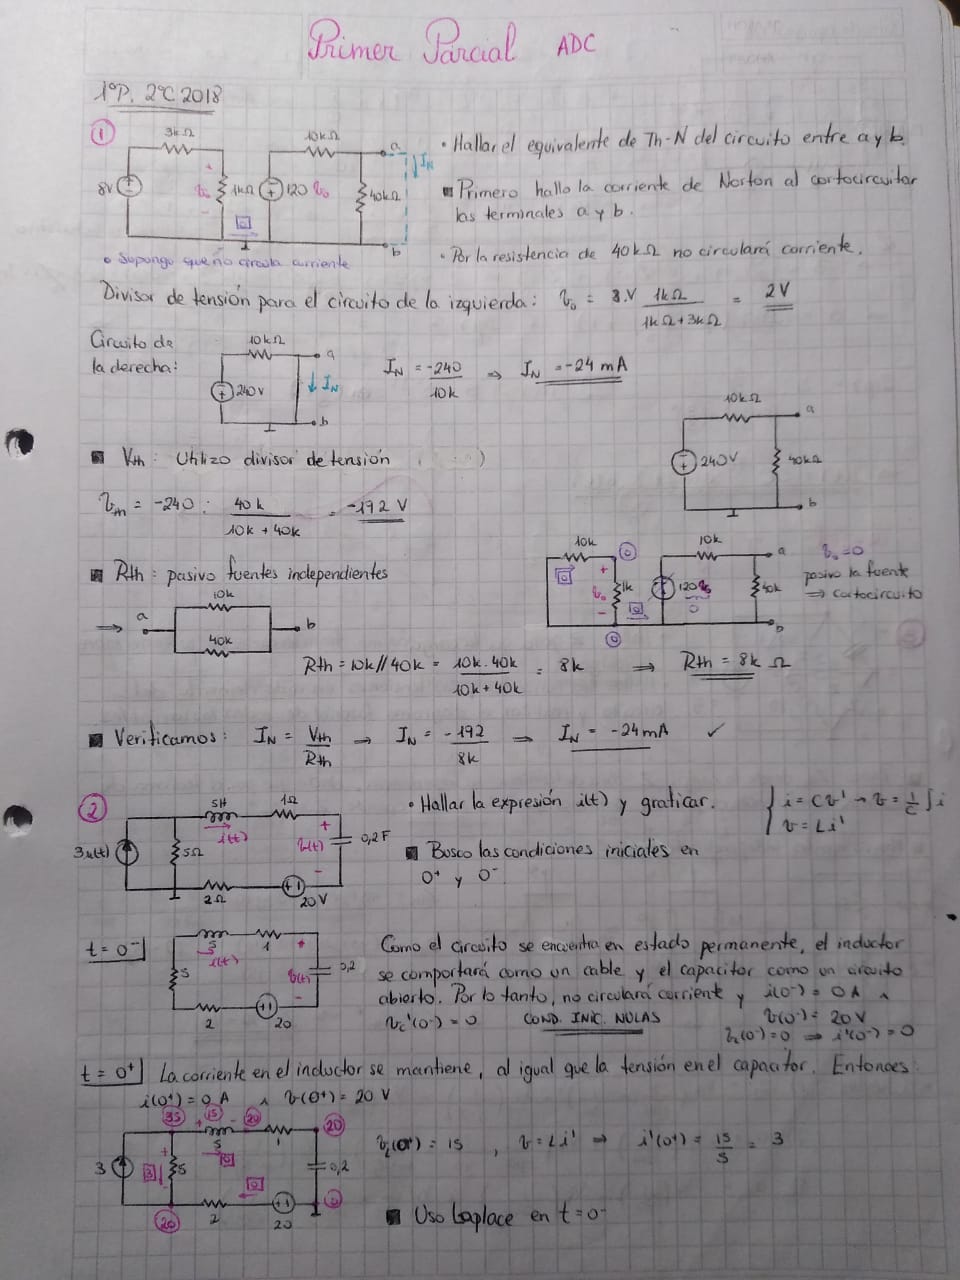 Primer Parcial ADC
1ºP. 2ºC 2018
①
3kΩ
10kΩ
8V
v₀
1kΩ
120 v₀
40kΩ
a
I_N
b
0
• Supongo que no circula corriente
• Hallar el equivalente de Th-N del circuito entre a y b.
■ Primero hallo la corriente de Norton al cortocircuitar
los terminales a y b.
• Por la resistencia de 40kΩ no circulará corriente.
Divisor de tensión para el circuito de la izquierda: v₀ = 8V 1kΩ / (1kΩ+3kΩ) = 2V
Circuito de
la derecha:
10kΩ
240V
a
I_N
b
I_N = -240 / 10k ⇒ I_N = -24 mA
■ Vth: Utilizo divisor de tensión
10kΩ
a
240V
40kΩ
b
V_th = -240 . 40k / (10k + 40k) = -192 V
■ Rth: pasivo fuentes independientes
10k
0
10k
a
v₀
1k
120v₀
0
40k
b
0
v₀=0
pasivo la fuente
⇒ cortocircuito
→ a
10k
40k
b
Rth = 10k // 40k = 10k . 40k / (10k + 40k) = 8k → Rth = 8k Ω
■ Verificamos: I_N = Vth / Rth → I_N = -192 / 8k → I_N = -24mA ✓
②
5H
1Ω
3u(t)
5Ω
i(t)
v(t)
0,2F
2Ω
20V
• Hallar la expresión i(t) y graficar.
{ i = Cv' → v = 1/C ∫i
v = Li'
■ Busco las condiciones iniciales en
0⁺ y 0⁻
t = 0⁻
5
1
i(t)
5
v(t)
0,2
2
20
Como el circuito se encuentra en estado permanente, el inductor
se comportará como un cable y el capacitor como un circuito
abierto. Por lo tanto, no circulará corriente y i(0⁻) = 0 A ∧
v_c'(0⁻) = 0 COND. INIC. NULAS v(0⁻) = 20 V
v_L(0⁻) = 0 ⇒ i'(0⁻) = 0
t = 0⁺ La corriente en el inductor se mantiene, al igual que la tensión en el capacitor. Entonces:
i(0⁺) = 0 A ∧ v(0⁺) = 20 V
35
15
20
20
5
1
3
3
5
0
0
0,2
20
2
20
0
v_L(0⁺) = 15 , v = Li' ⇒ i'(0⁺) = 15 / 5 = 3
■ Uso Laplace en t=0⁻